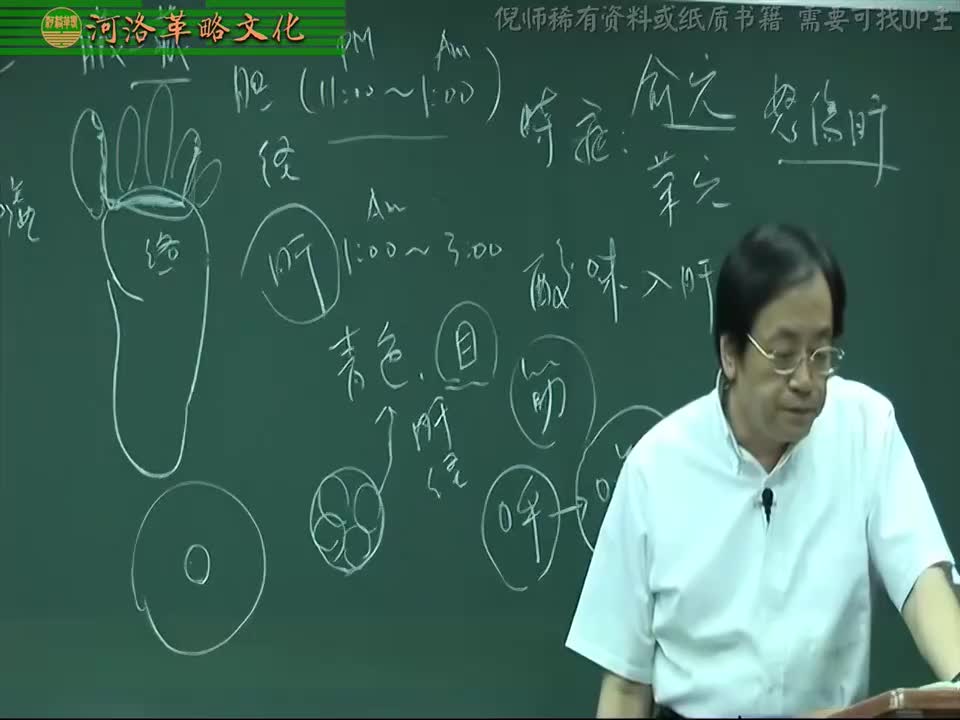 河洛革略文化
倪师稀有资料或纸质书籍 需要可找UP主
PM Am
胆 (11:00～1:00)
经
时症: 俞穴
荥穴
怒傷肝
络
Am
肝 1:00～3:00
酸味入肝
青色. 目
肝
经
筋
呼